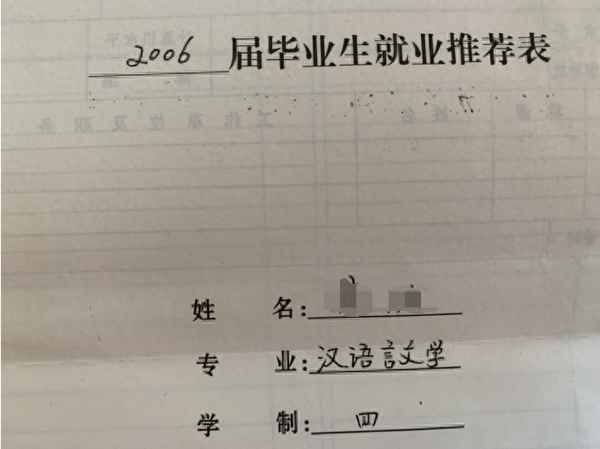 2006 届毕业生就业推荐表
姓 名:
专 业: 汉语言文学
学 制: 四